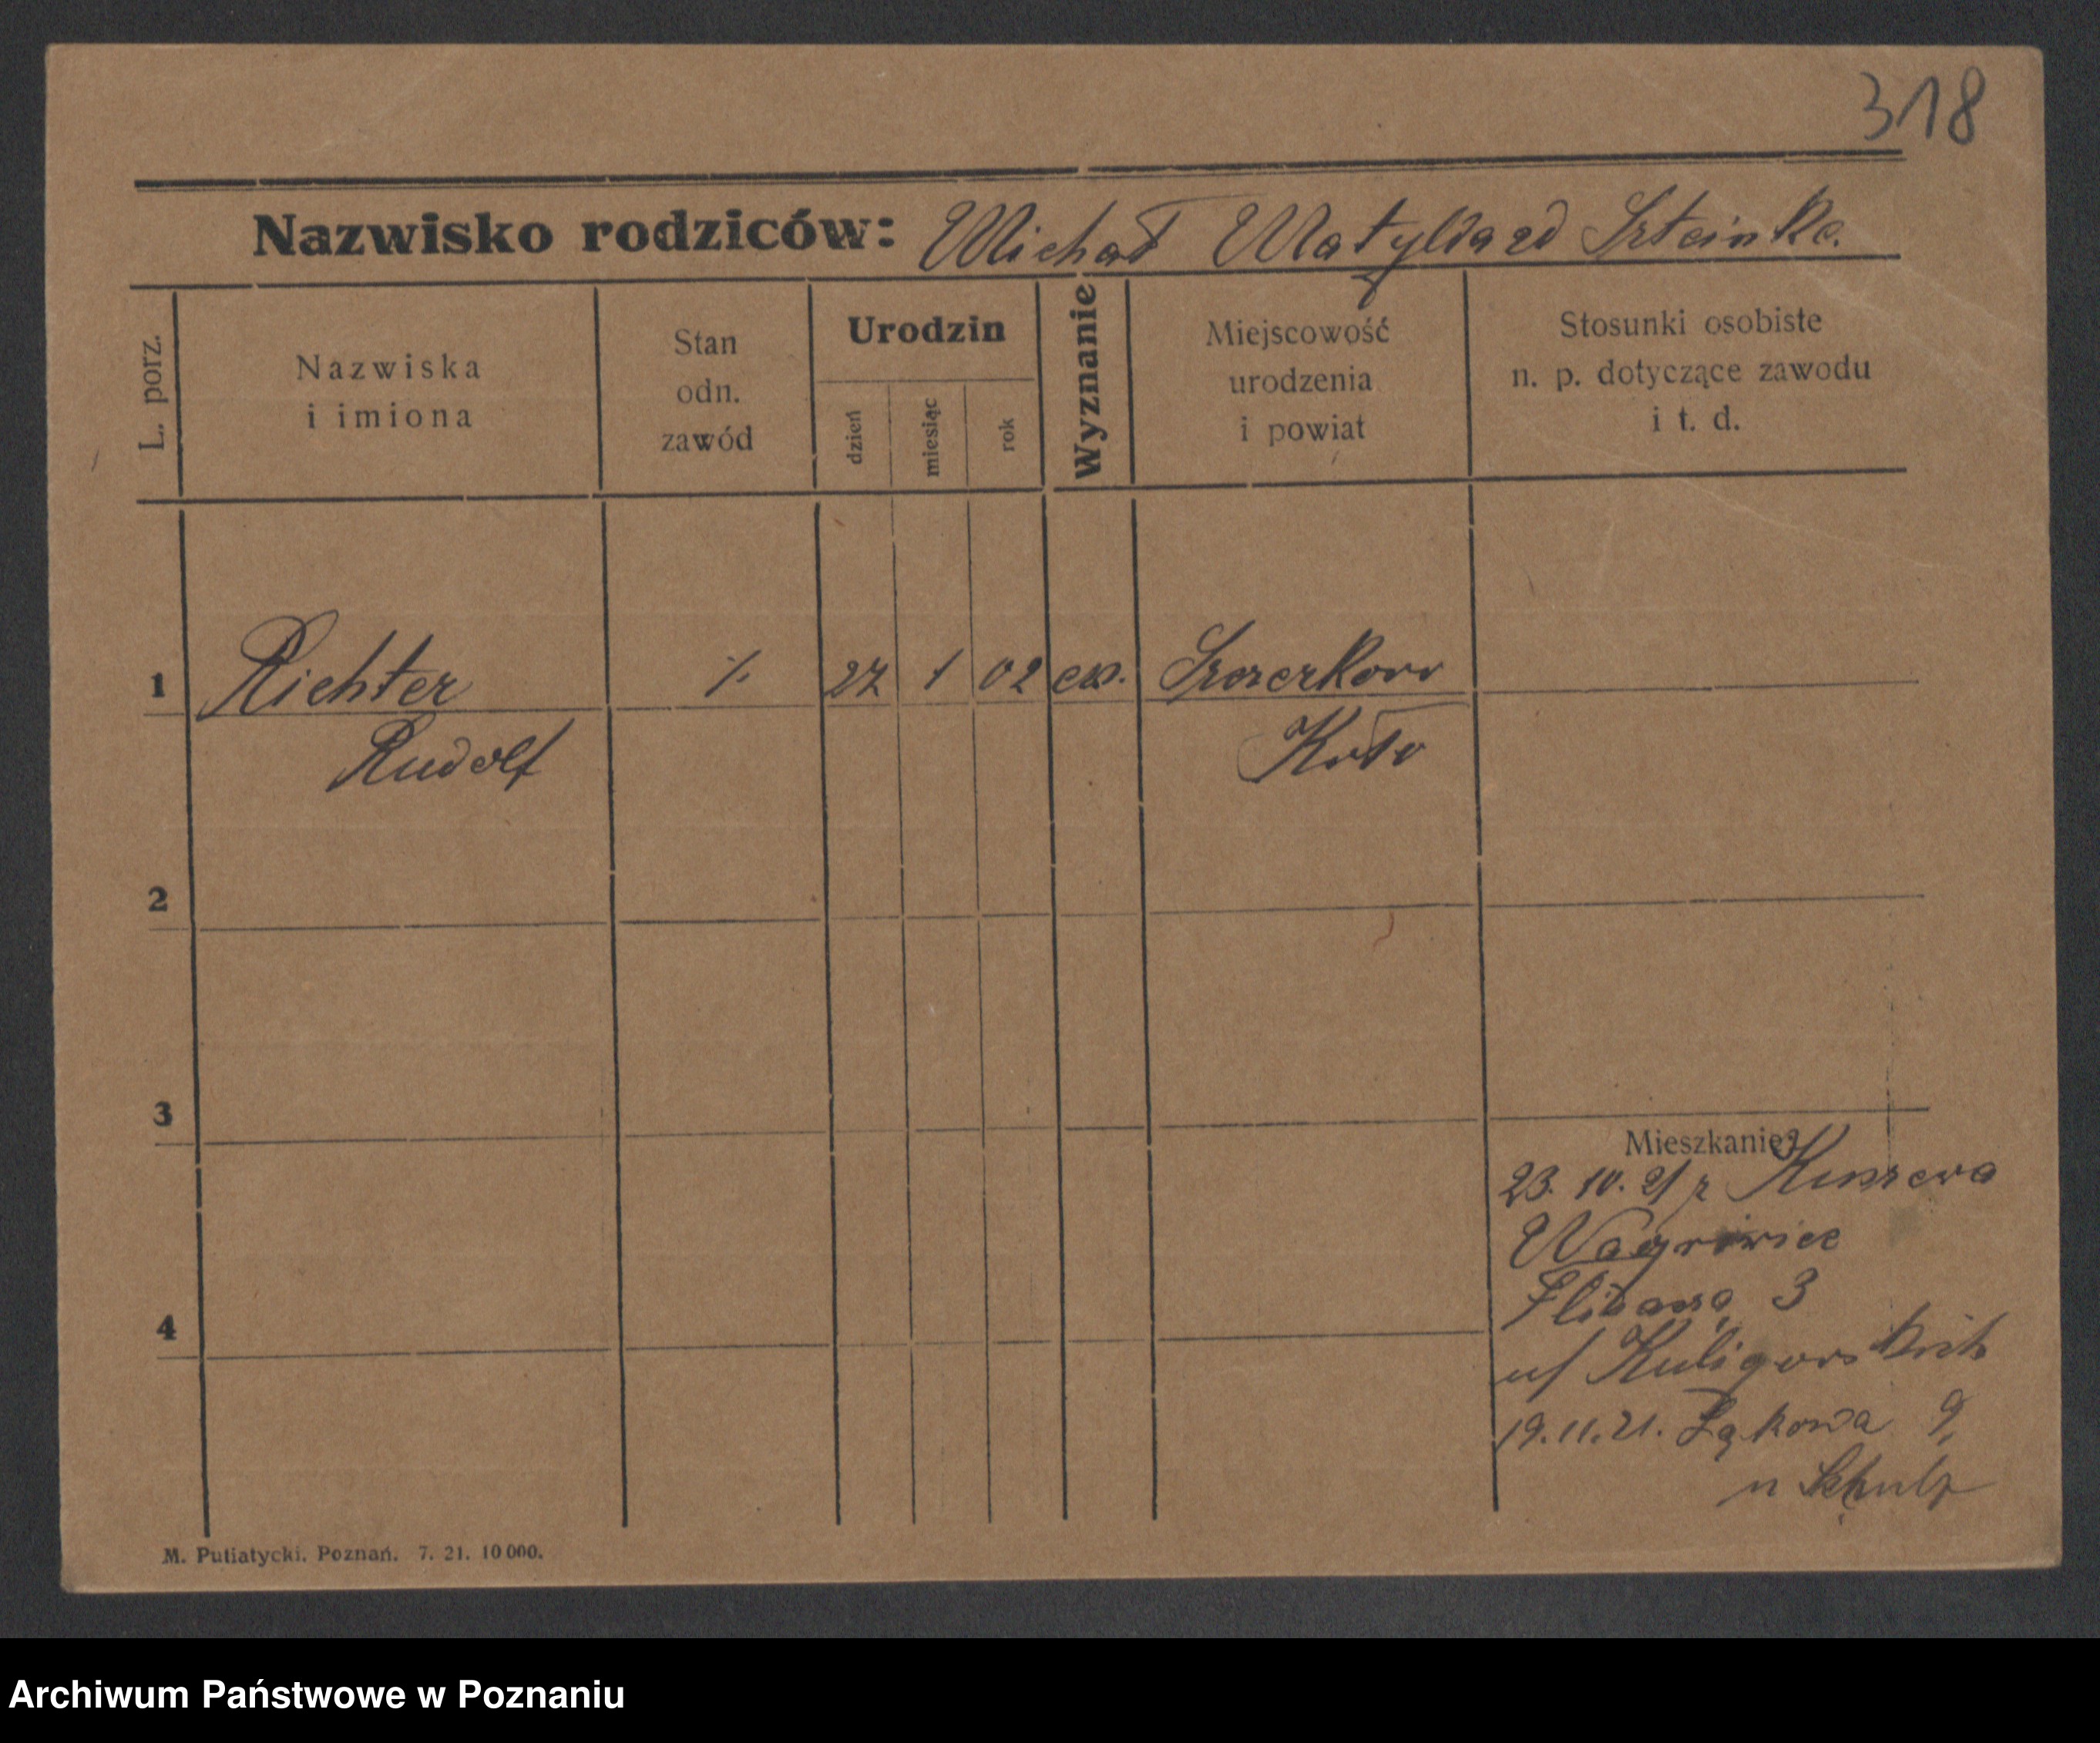 318
Nazwisko rodziców: Michał Matylda zd Szteinke.
L. porz.
Nazwiska
i imiona
Stan
odn.
zawód
Urodzin
dzień
miesiąc
rok
Wyznanie
Miejscowość
urodzenia
i powiat
Stosunki osobiste
n. p. dotyczące zawodu
i t. d.
1 Richter ./. 27 1 02 ew.
Rudolf Koło
2
3
Mieszkanie:
23. 10. 21 z
4
u/ Kuligowskich
19.11.21. Łąkowa 9,
u Schulz
M. Putiatycki, Poznań. 7. 21. 10000.
Archiwum Państwowe w Poznaniu